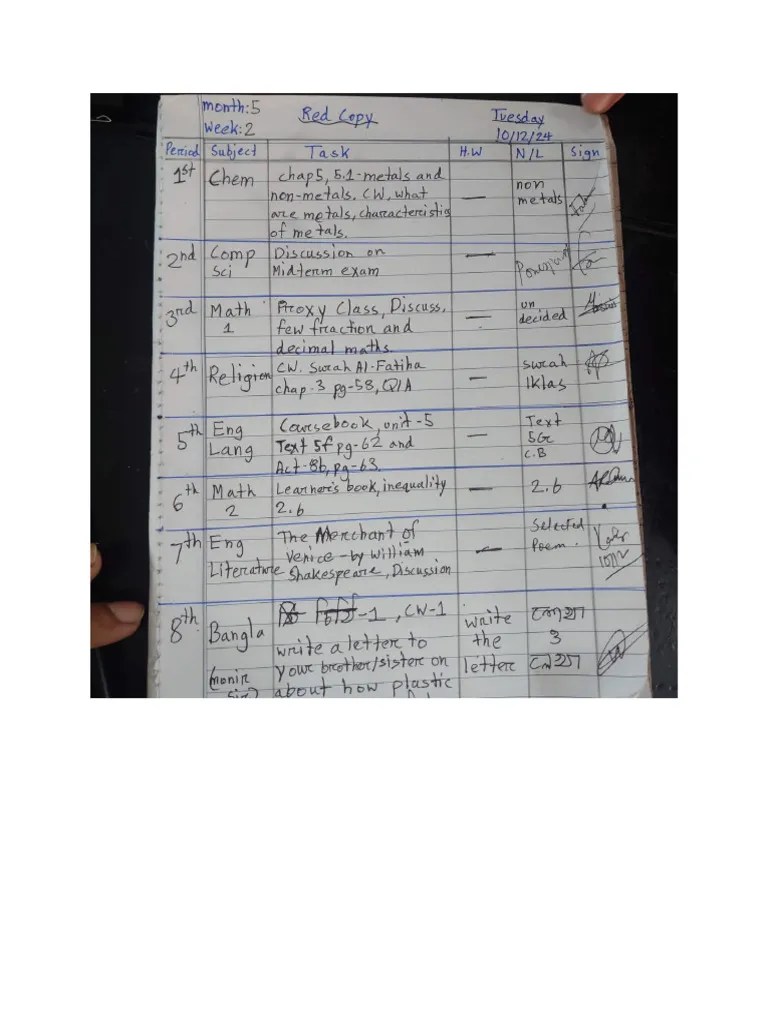 month: 5
Week: 2
Red Copy
Tuesday
10/12/24
Period Subject Task H.W N/L Sign
1st Chem chap5, 5.1-metals and
non-metals. CW, what
are metals, characteristics
of metals.
—
non
metals
2nd Comp
Sci
Discussion on
Midterm exam
—
3rd Math
1
Proxy Class, Discuss,
few fraction and
decimal maths.
—
un
decided
4th Religion
CW. Surah Al-Fatiha
chap.3 pg-58, Q/A
—
surah
Iklas
5th Eng
Lang
Coursebook, unit-5
Text 5f pg-62 and
Act-8b, pg-63.
—
Text
5G
C.B
6th Math
2
Learner's book, inequality
2.6
—
2.6
7th Eng
Literature
The Merchant of
Venice - by William
Shakespeare, Discussion
—
Selected
Poem.
10/12
8th Bangla
(monir
sir)
-1, CW-1
write a letter to
your brother/sister on
about how plastic
write
the
letter
3